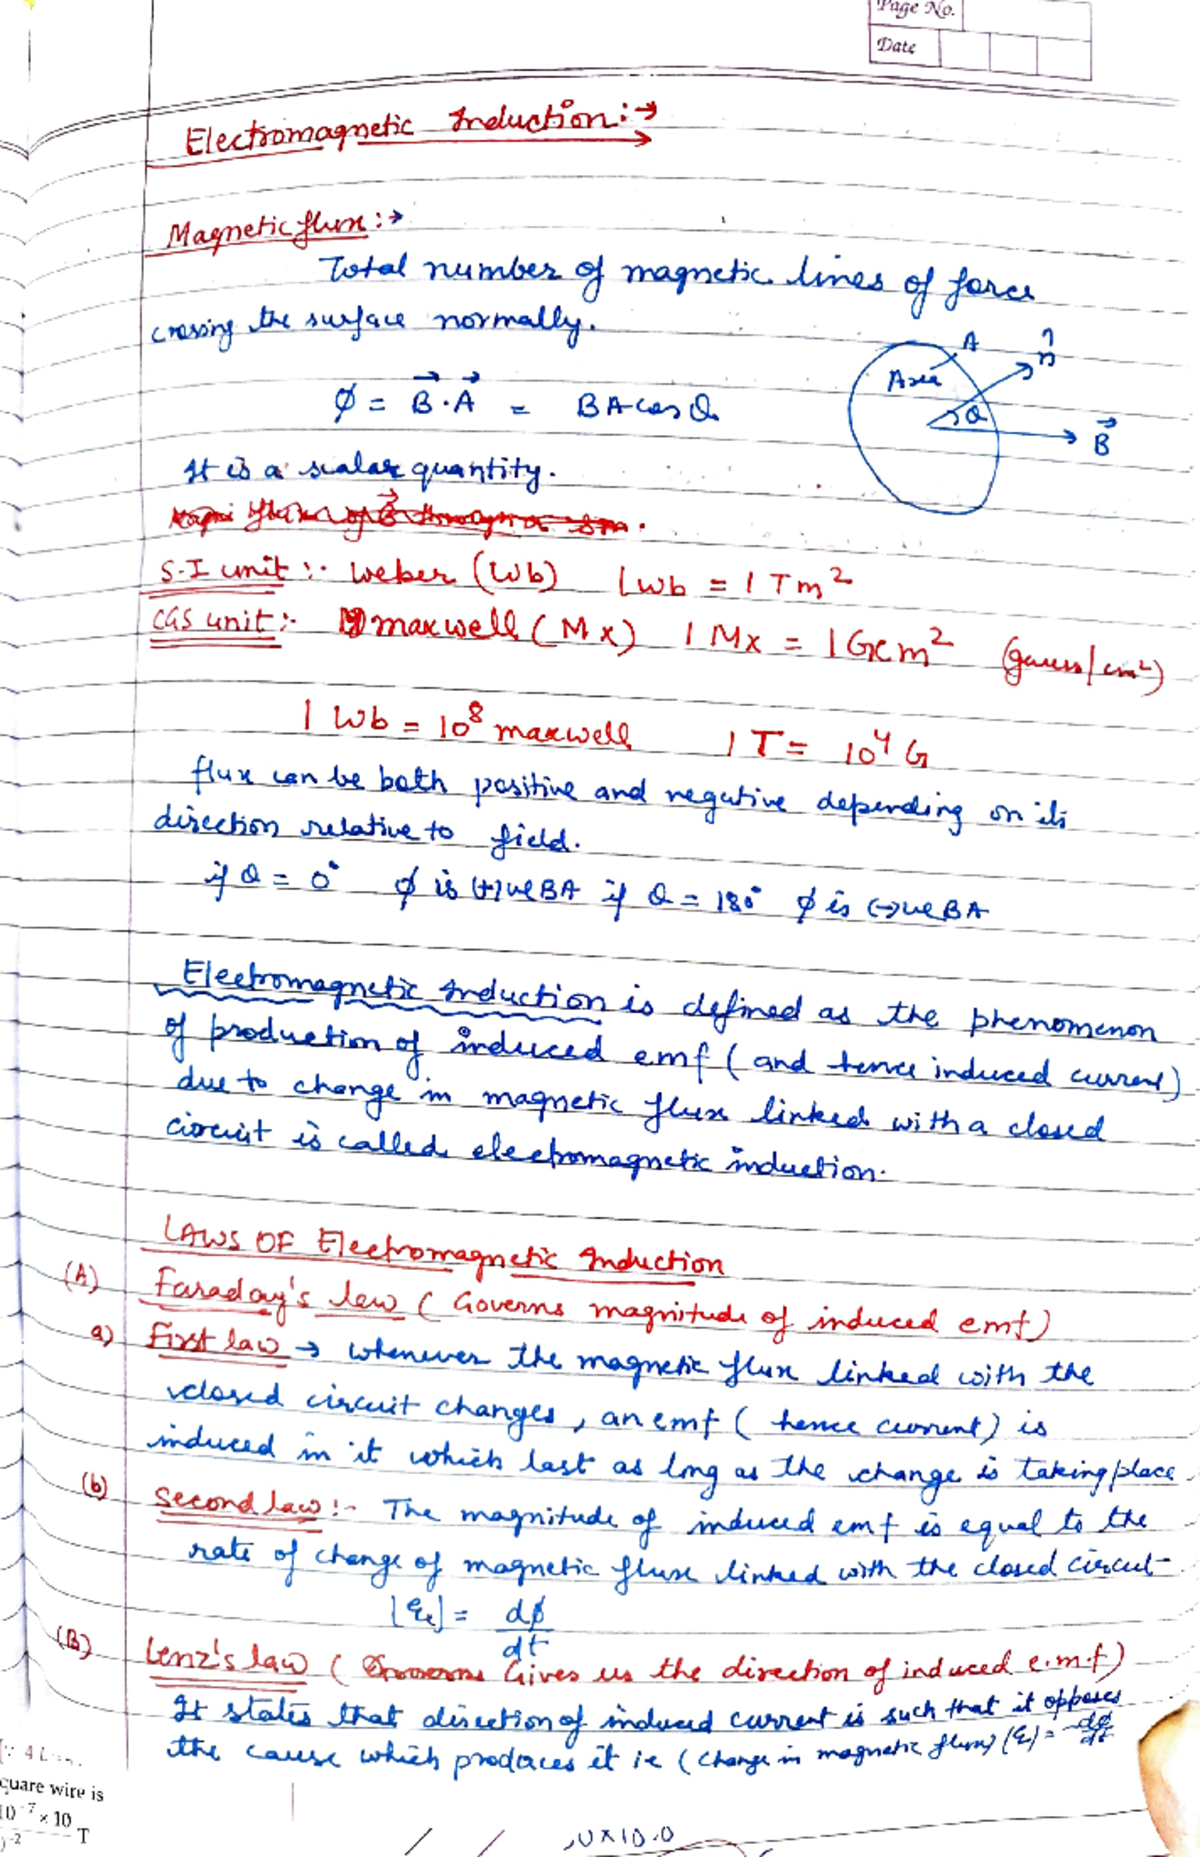 Page No.
Date
Electromagnetic Induction :→
Magnetic flux :→
Total number of magnetic lines of force
crossing the surface normally.
A n̂
Area
θ
B⃗
ϕ = B⃗ · A⃗ = BA cos θ
It is a scalar quantity.
S.I unit :- weber (Wb) 1 wb = 1 Tm²
CGS unit :- maxwell (Mx) 1 Mx = 1 Gxcm² (gauss/cm²)
1 Wb = 10⁸ maxwell 1 T = 10⁴ G
flux can be both positive and negative depending on its
direction relative to field.
if θ = 0° ϕ is (+)ve BA if θ = 180° ϕ is (-)ve BA
Electromagnetic Induction is defined as the phenomenon
of production of induced emf (and hence induced current)
due to change in magnetic flux linked with a closed
circuit is called electromagnetic induction.
LAWS OF Electromagnetic Induction
(A) Faraday's law (Governs magnitude of induced emf)
a) First law → whenever the magnetic flux linked with the
closed circuit changes, an emf (hence current) is
induced in it which last as long as the change is taking place
(b) Second law :- The magnitude of induced emf is equal to the
rate of change of magnetic flux linked with the closed circuit-
|ε| = dϕ/dt
(B) Lenz's law ( Gives us the direction of induced e.m.f)
It states that direction of induced current is such that it opposes
the cause which produces it ie (change in magnetic flux) (ε) = -dϕ/dt
quare wire is
10⁻⁷ × 10
T
-2